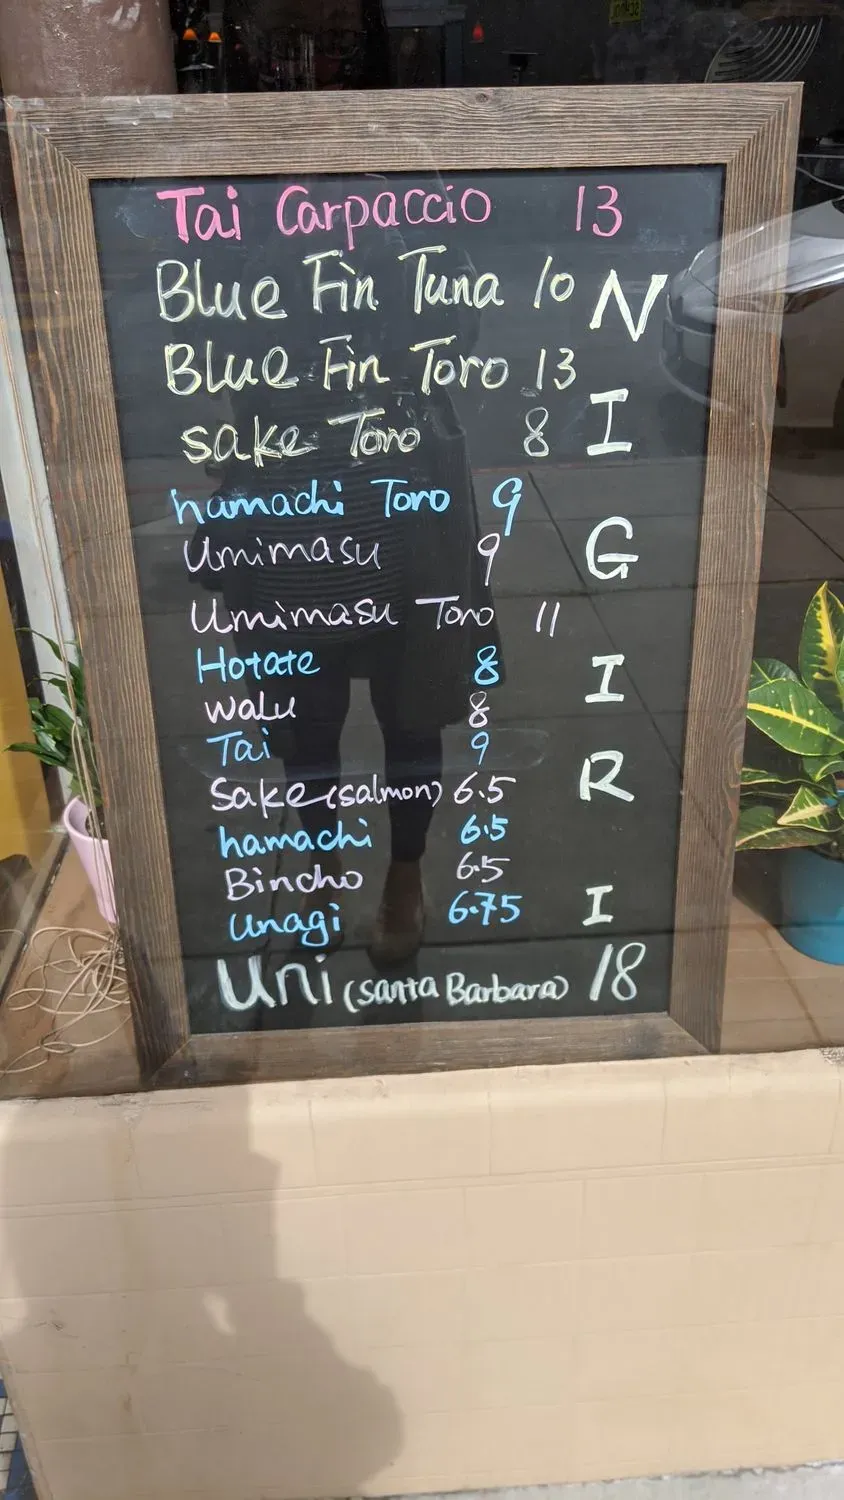 Tai Carpaccio 13
Blue Fin Tuna 10
Blue Fin Toro 13
sake Toro 8
hamachi Toro 9
Umimasu 9
Umimasu Toro 11
Hotate 8
walu 8
Tai 9
Sake (salmon) 6.5
hamachi 6.5
Bincho 6.5
unagi 6.75
Uni (santa Barbara) 18
NIGIRI